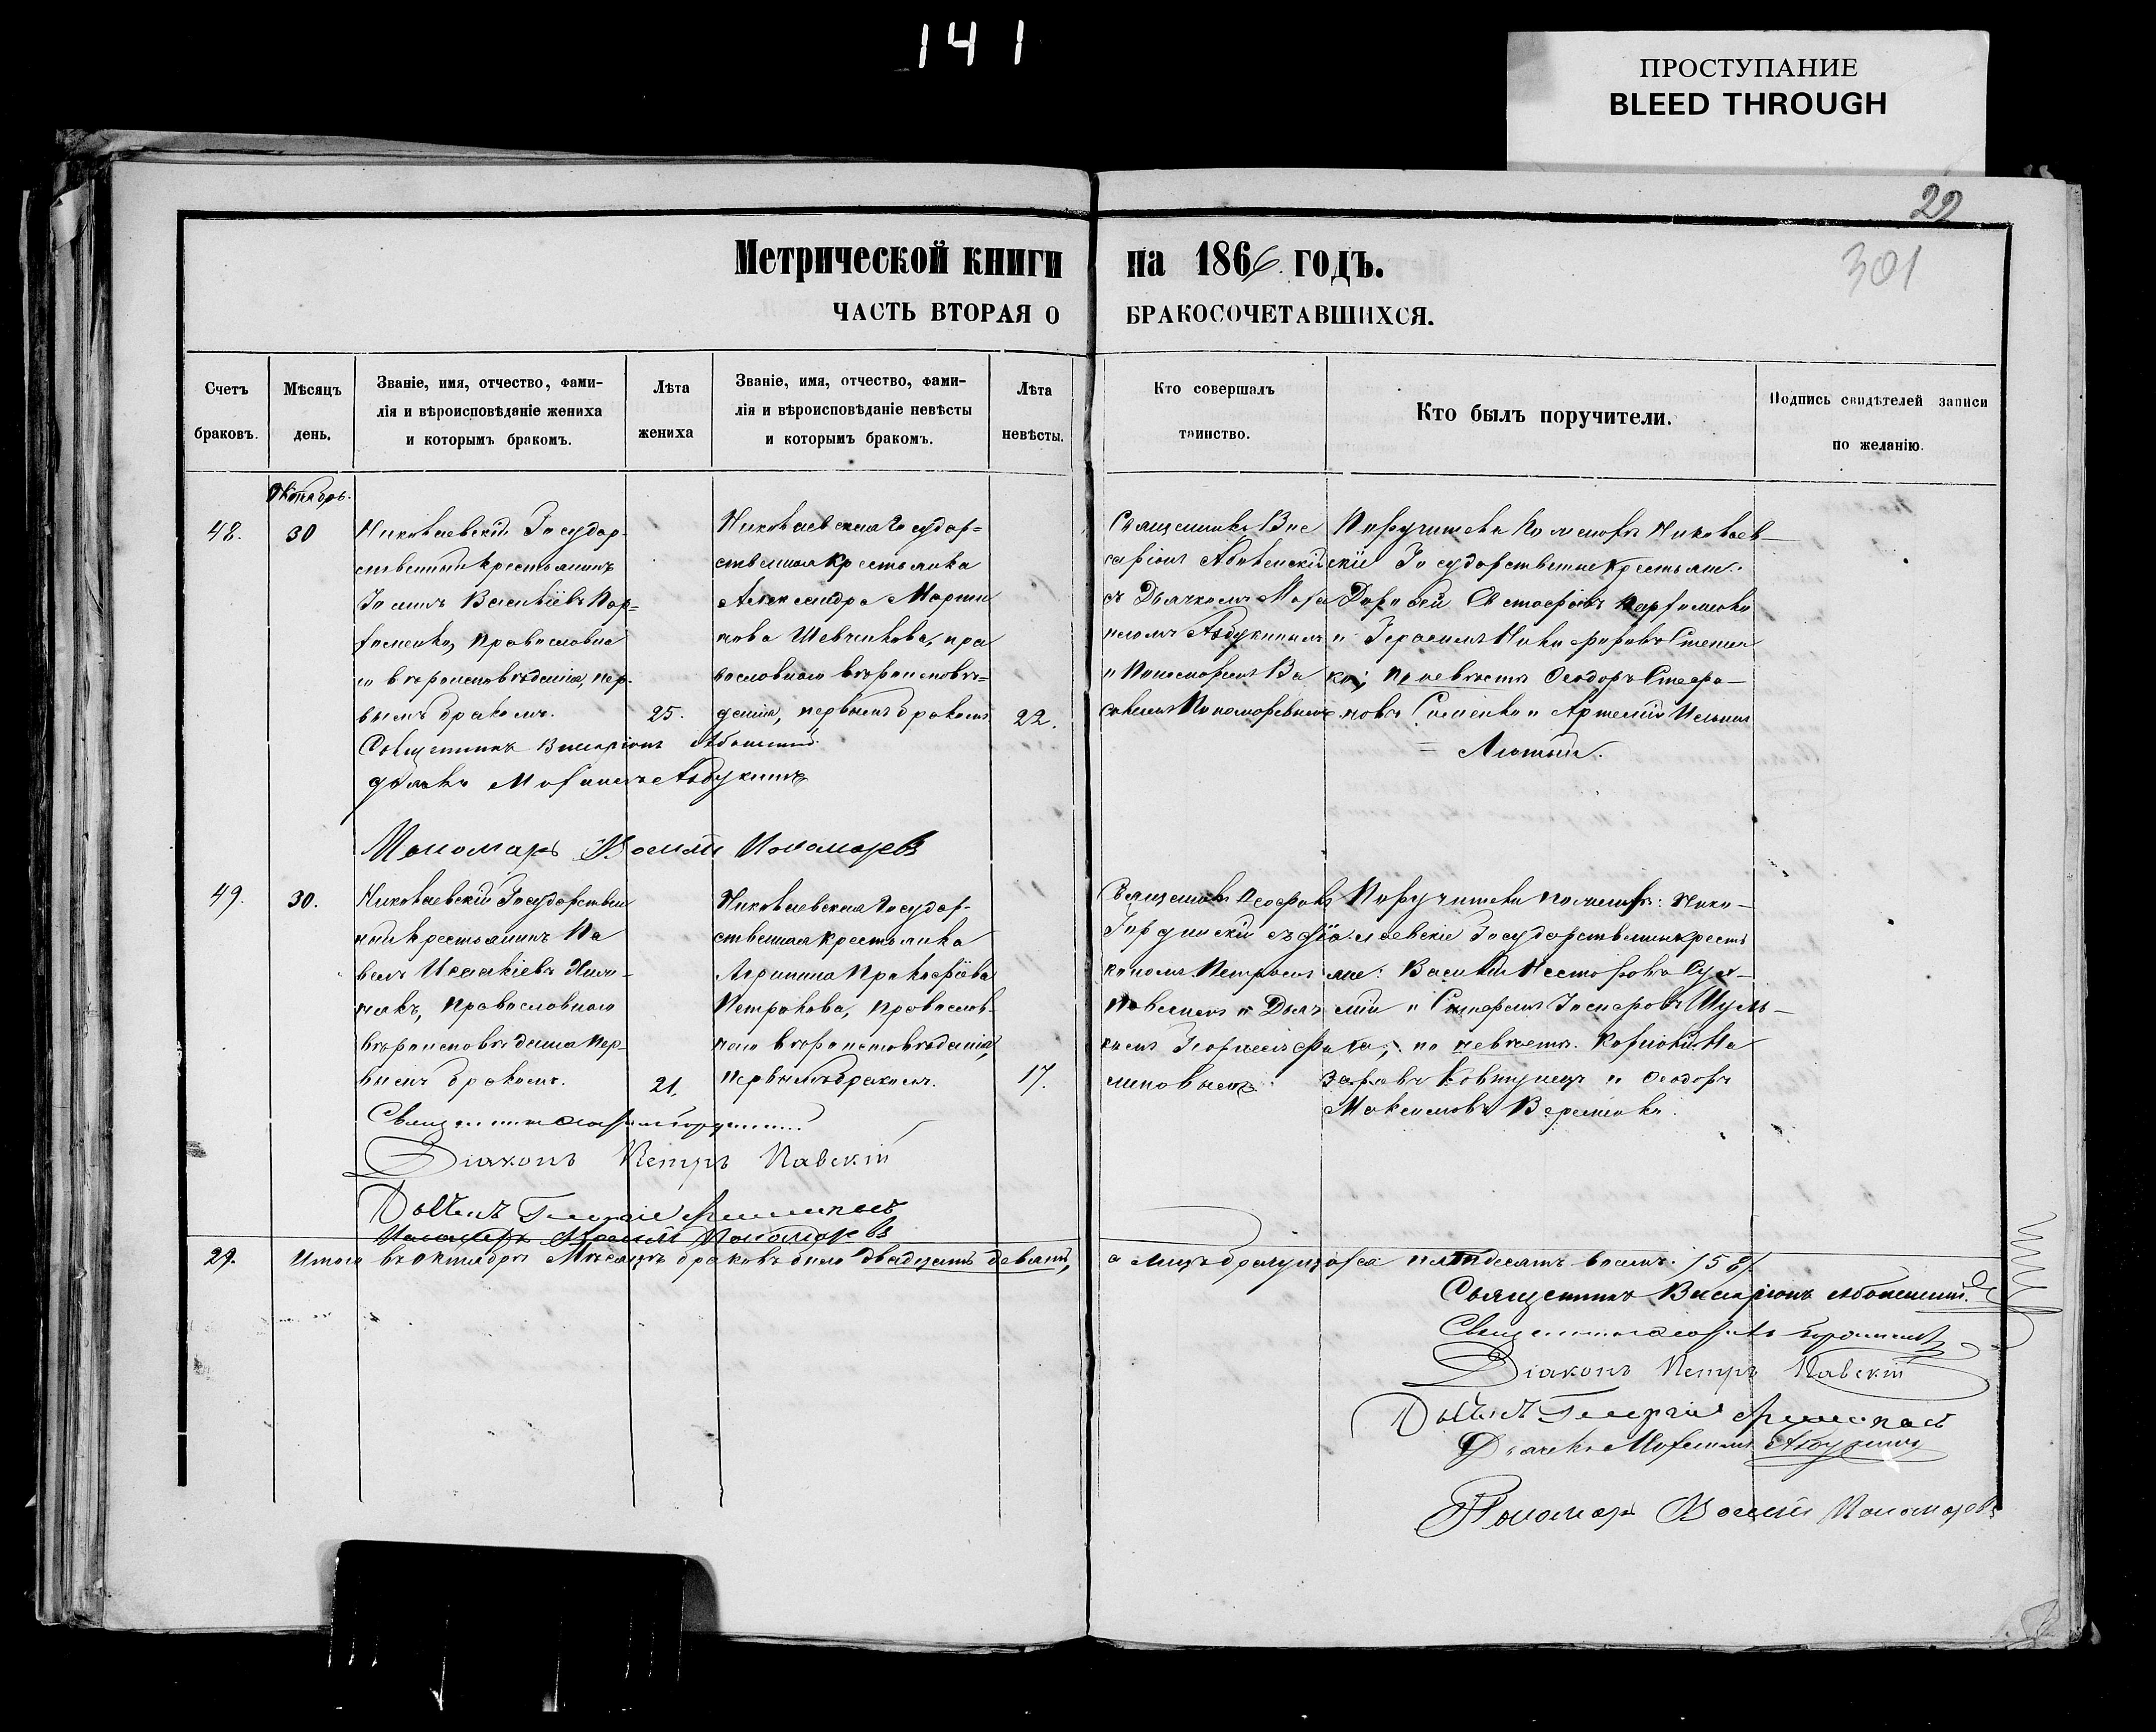 141
ПРОСТУПАНИЕ
BLEED THROUGH
22
301
Метрической книги на 1866 годъ.
ЧАСТЬ ВТОРАЯ О БРАКОСОЧЕТАВШИХСЯ.
Счетъ браковъ.
Мѣсяцъ день.
Званіе, имя, отчество, фами-
лія и вѣроисповѣданіе жениха
и которымъ бракомъ.
Лѣта жениха
Званіе, имя, отчество, фами-
лія и вѣроисповѣданіе невѣсты
и которымъ бракомъ.
Лѣта невѣсты.
Кто совершалъ
таинство.
Кто былъ поручители.
Подпись свидѣтелей записи
по желанію.
Октябрь.
48.
30
Николаевскій Государ-
ственный крестьянинъ
Василіевъ Пар=
фоменко, Православна
го вѣроисповѣданія, пер-
вымъ бракомъ.
25.
Николаевская Государ=
ственная крестьянка
Александра Марти
нова Шевченкова, пра
вославнаго вѣроисповѣ=
данія, первымъ бракомъ
22.
Священникъ Вис
саріонъ
съ Дьячкомъ Моѳ
Азбукинымъ
и Пономаремъ Ва
силіемъ Пономаревымъ
Поручители по женихѣ Николаев-
скіе Государственные крестьяне:
Дороѳей Евстафіевъ Парфоменко
и Герасимъ Никифоровъ
ко; по невѣстѣ Ѳеодоръ Стефа-
новъ Симненко и Артемій Ильинъ
Лютый.
Священникъ Виссаріонъ
дьячекъ Моѳ Азбукинъ
Пономарь Василій Пономаревъ
49.
30.
Николаевскій Государствен
ный крестьянинъ Па
велъ Исаакіевъ
Православнаго
вѣроисповѣданія пер-
вымъ бракомъ.
21.
Николаевская Государ-
ственная крестьянка
Агрипина Прокофіева
Петракова, православ-
наго вѣроисповѣданія,
первымъ бракомъ.
17.
Священникъ
съ Діа
кономъ Петромъ
Павскимъ и Дьяч
комъ Георгіемъ Фи
липовымъ
Поручители по женихѣ: Нико-
лаевскіе Государственные кресть
яне: Василій Несторовъ
и
ка; по невѣстѣ. Корнилій На
заровъ Ковтунецъ и Ѳеодоръ
Максимовъ
Священникъ
Діаконъ Петръ Павскій
Дьячекъ Георгій
Пономарь Василій Пономаревъ
29.
Итого въ Октябрѣ Мѣсяцѣ браковъ было двадцать девять,
а лицъ брачущихся пятьдесятъ восемь. /58/.
Священникъ Виссаріонъ
Священникъ
Діаконъ Петръ Павскій
Дьячекъ Георгій
Дьячекъ Моѳ Азбукинъ
Пономарь Василій Пономаревъ